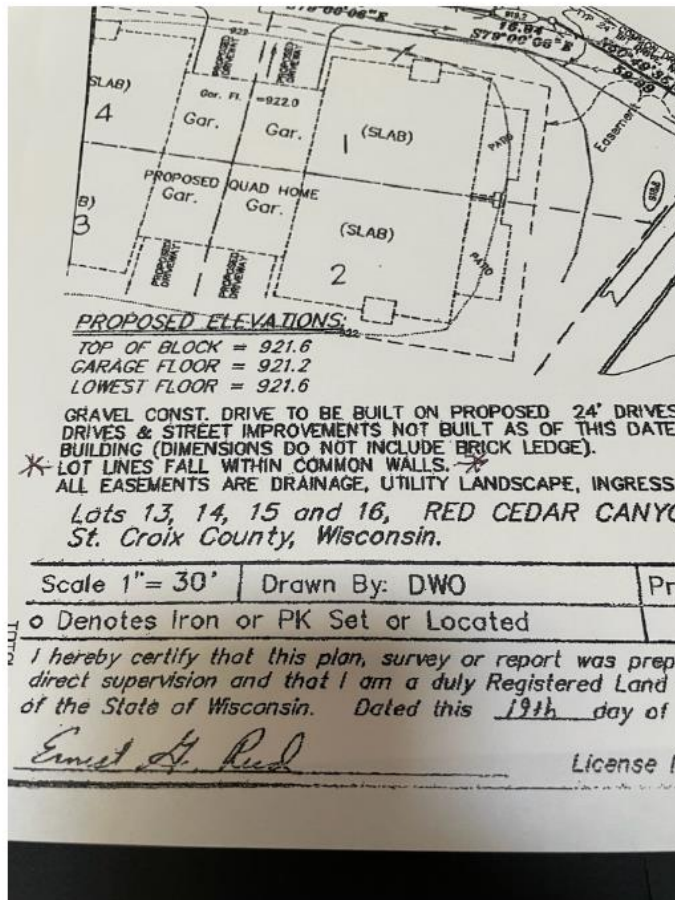 S79°00'06"E
16.84
S79°00'06"E
59.89
Easement
PROPOSED DRIVEWAY
PROPOSED DRIVEWAY
SLAB)
Gar. Fl. =922.0
4
Gar.
Gar.
1
(SLAB)
PATIO
PROPOSED QUAD HOME
B)
Gar.
Gar.
3
(SLAB)
PROPOSED DRIVEWAY
PROPOSED DRIVEWAY
2
PATIO
PROPOSED ELEVATIONS:
TOP OF BLOCK = 921.6
GARAGE FLOOR = 921.2
LOWEST FLOOR = 921.6
GRAVEL CONST. DRIVE TO BE BUILT ON PROPOSED 24' DRIVES
DRIVES & STREET IMPROVEMENTS NOT BUILT AS OF THIS DATE
BUILDING (DIMENSIONS DO NOT INCLUDE BRICK LEDGE).
* LOT LINES FALL WITHIN COMMON WALLS. *
ALL EASEMENTS ARE DRAINAGE, UTILITY LANDSCAPE, INGRESS
Lots 13, 14, 15 and 16, RED CEDAR CANYO
St. Croix County, Wisconsin.
Scale 1"= 30' Drawn By: DWO Pr
o Denotes Iron or PK Set or Located
I hereby certify that this plan, survey or report was prep
direct supervision and that I am a duly Registered Land
of the State of Wisconsin. Dated this 19th day of
Ernest G. Rud
License